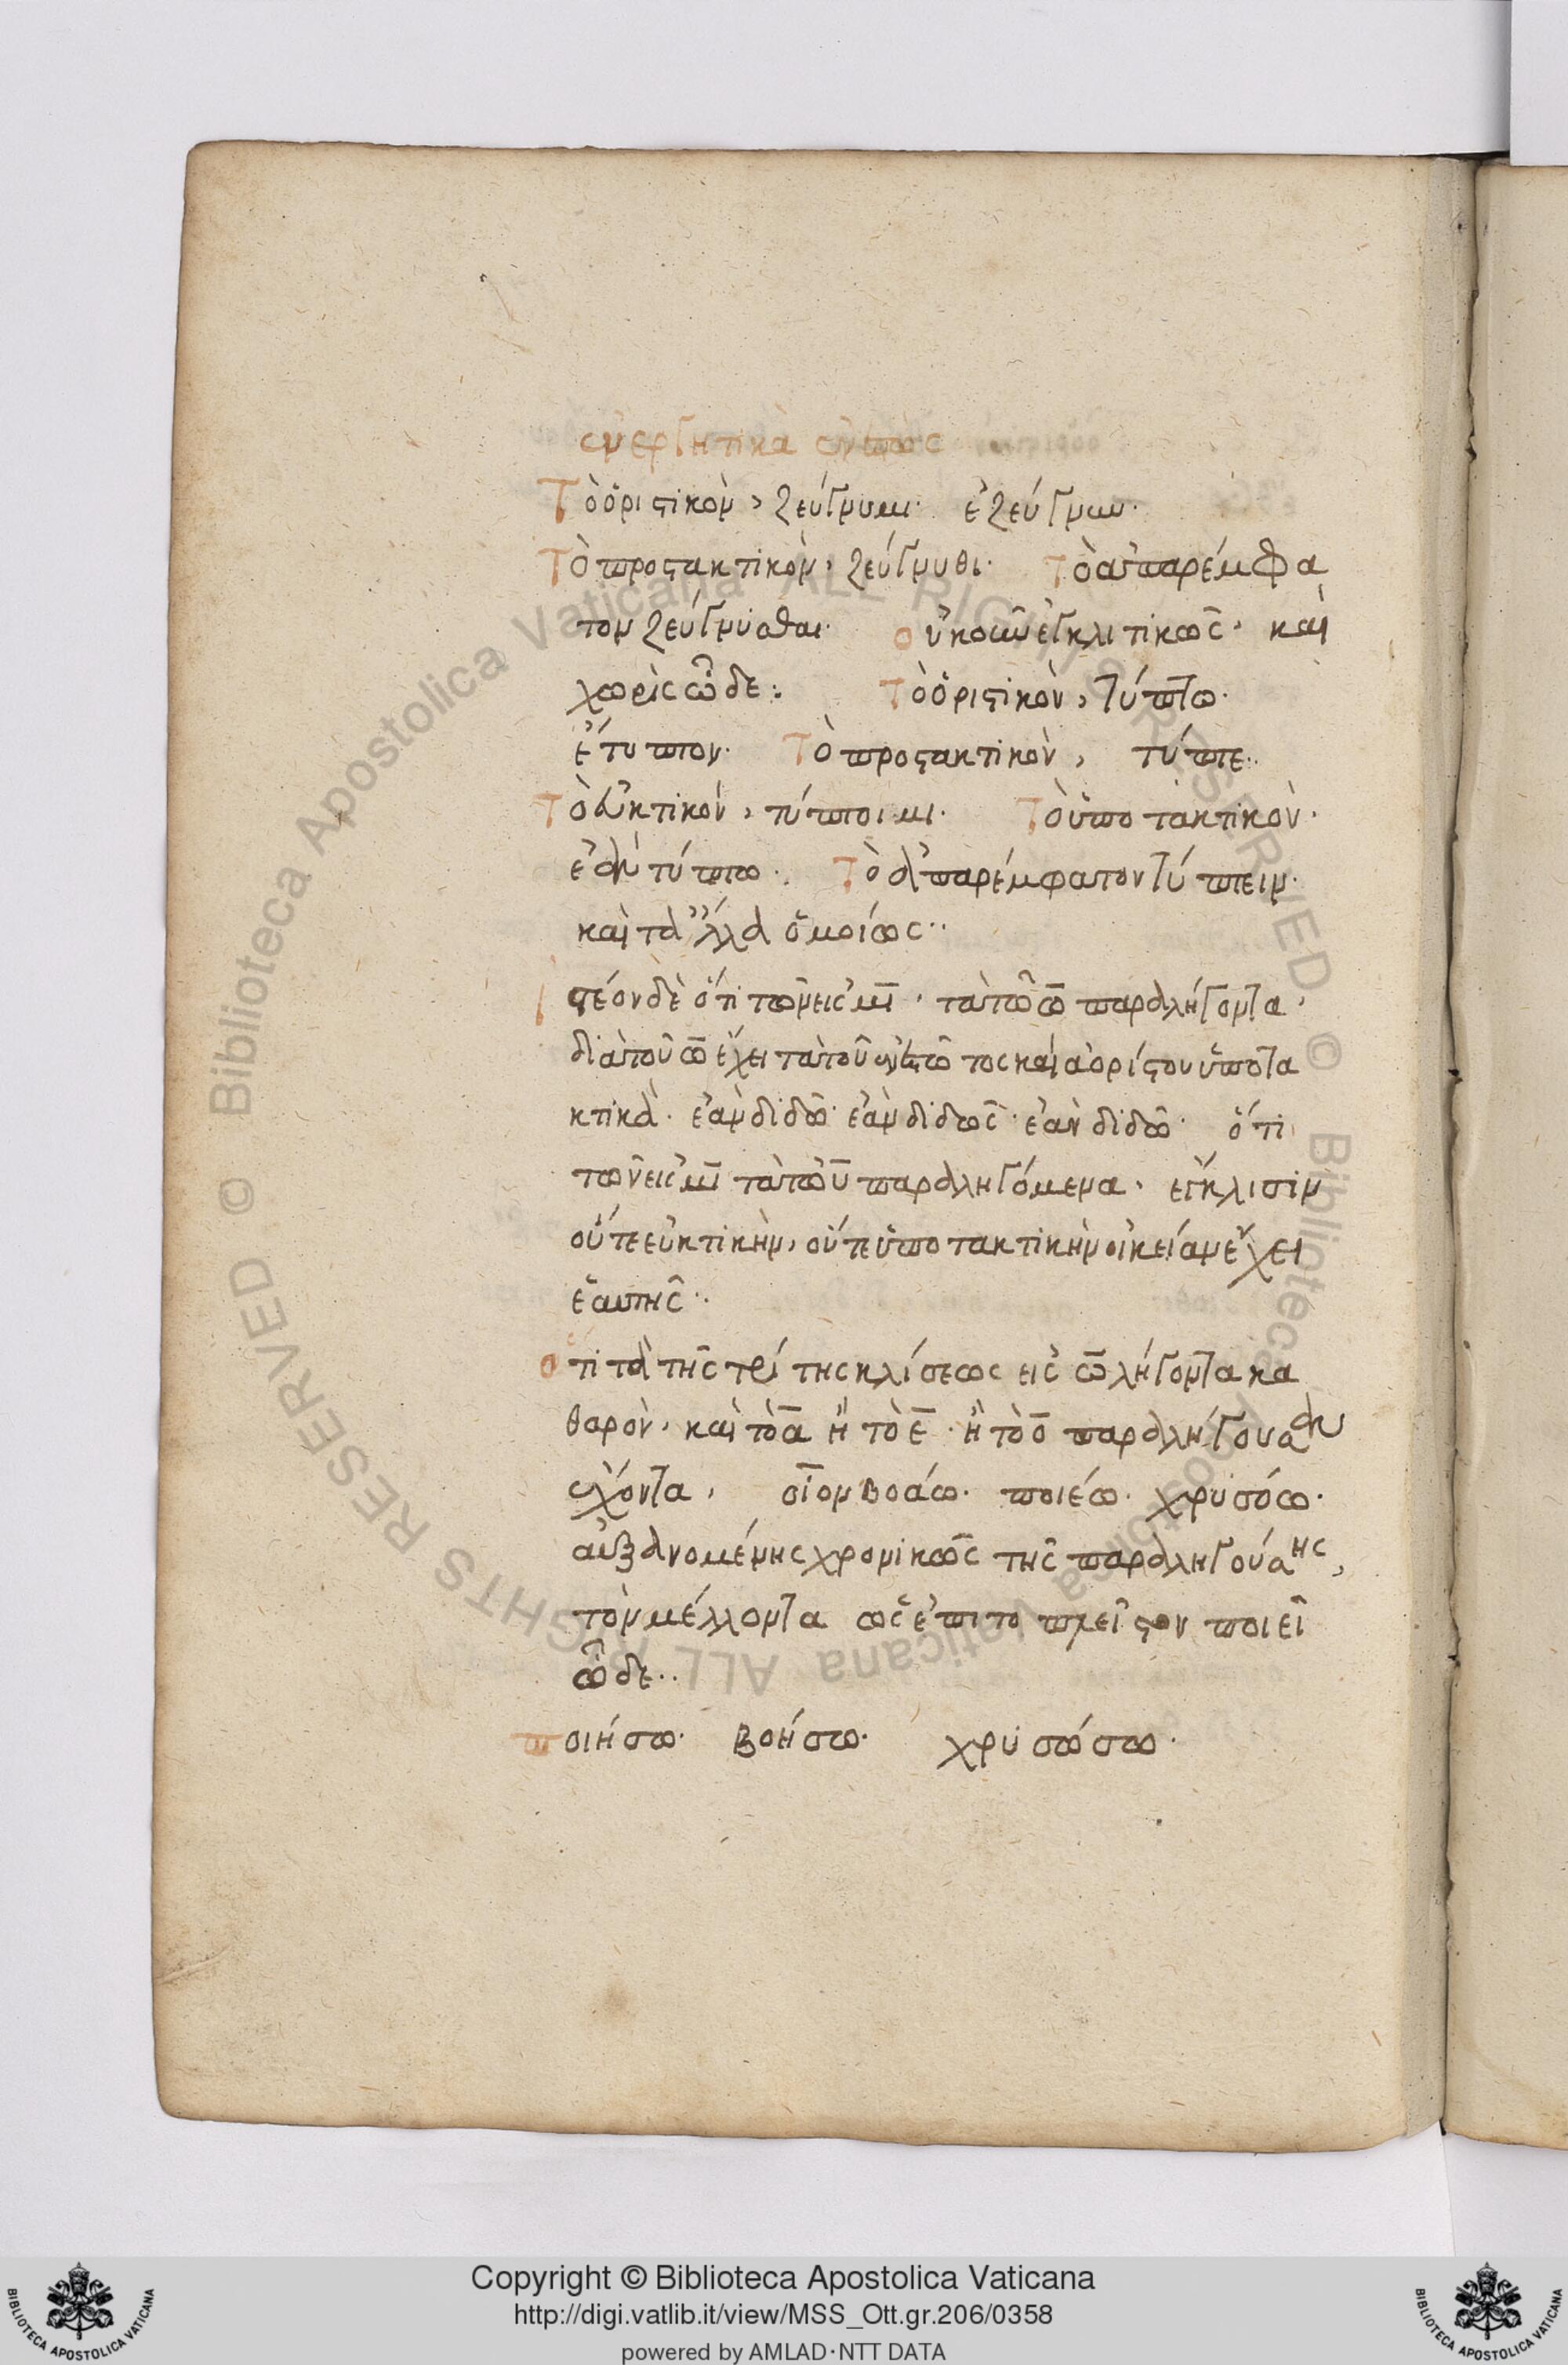 ἐνεργητικὰ οὕτως
Τὸ ὁριστικὸν, ζεύγνυμι. ἐζεύγνυν.
Τὸ προστακτικὸν, ζεύγνυθι. Τὸ ἀπαρέμφα
τον ζεύγνυσθαι. οὐκοῦν ἐγκλιτικῶς. καὶ
χωρὶς ὧδε: Τὸ ὁριστικὸν, τύπτω.
ἔτυπον. Τὸ προστακτικὸν, τύπε..
Τὸ εὐκτικὸν, τύποιμι. Τὸ ὑποτακτικὸν.
ἐὰν τύπω. Τὸ ἀπαρέμφατον τύπειν.
καὶ τἄλλα ὁμοίως..
ἰστέον δὲ ὅτι τῶν εἰς μι. τὰ τῶ ω παραλήγοντα.
διὰ τοῦ ω ἔχει τὰ τοῦ ἐνεστῶτος καὶ ἀορίστου ὑποτα
κτικὰ. ἐὰν διδῶ. ἐὰν διδῶς. ἐὰν διδῶ. ὅτι
τῶν εἰς μι τὰ τῶ υ παραληγόμενα. ἔγκλισιν
οὔτε εὐκτικὴν, οὔτε ὑποτακτικὴν οἰκείαν ἔχει
ἑαυτῆς..
ὅτι τὰ τῆς τρίτης κλίσεως εἰς ω λήγοντα κα
θαρὸν. καὶ τὸ α ἢ τὸ ε. ἢ τὸ ο παραλήγουσαν
ἔχοντα, οἷον βοάω. ποιέω. χρυσόω.
αὐξανομένης χρονικῶς τῆς παραληγούσης,
τὸν μέλλοντα ὡς ἐπιτο πλεῖστον ποιεῖ
ὧδε..
ποιήσω. βοήσω. χρυσώσω.
Copyright © Biblioteca Apostolica Vaticana
http://digi.vatlib.it/view/MSS_Ott.gr.206/0358
powered by AMLAD·NTT DATA